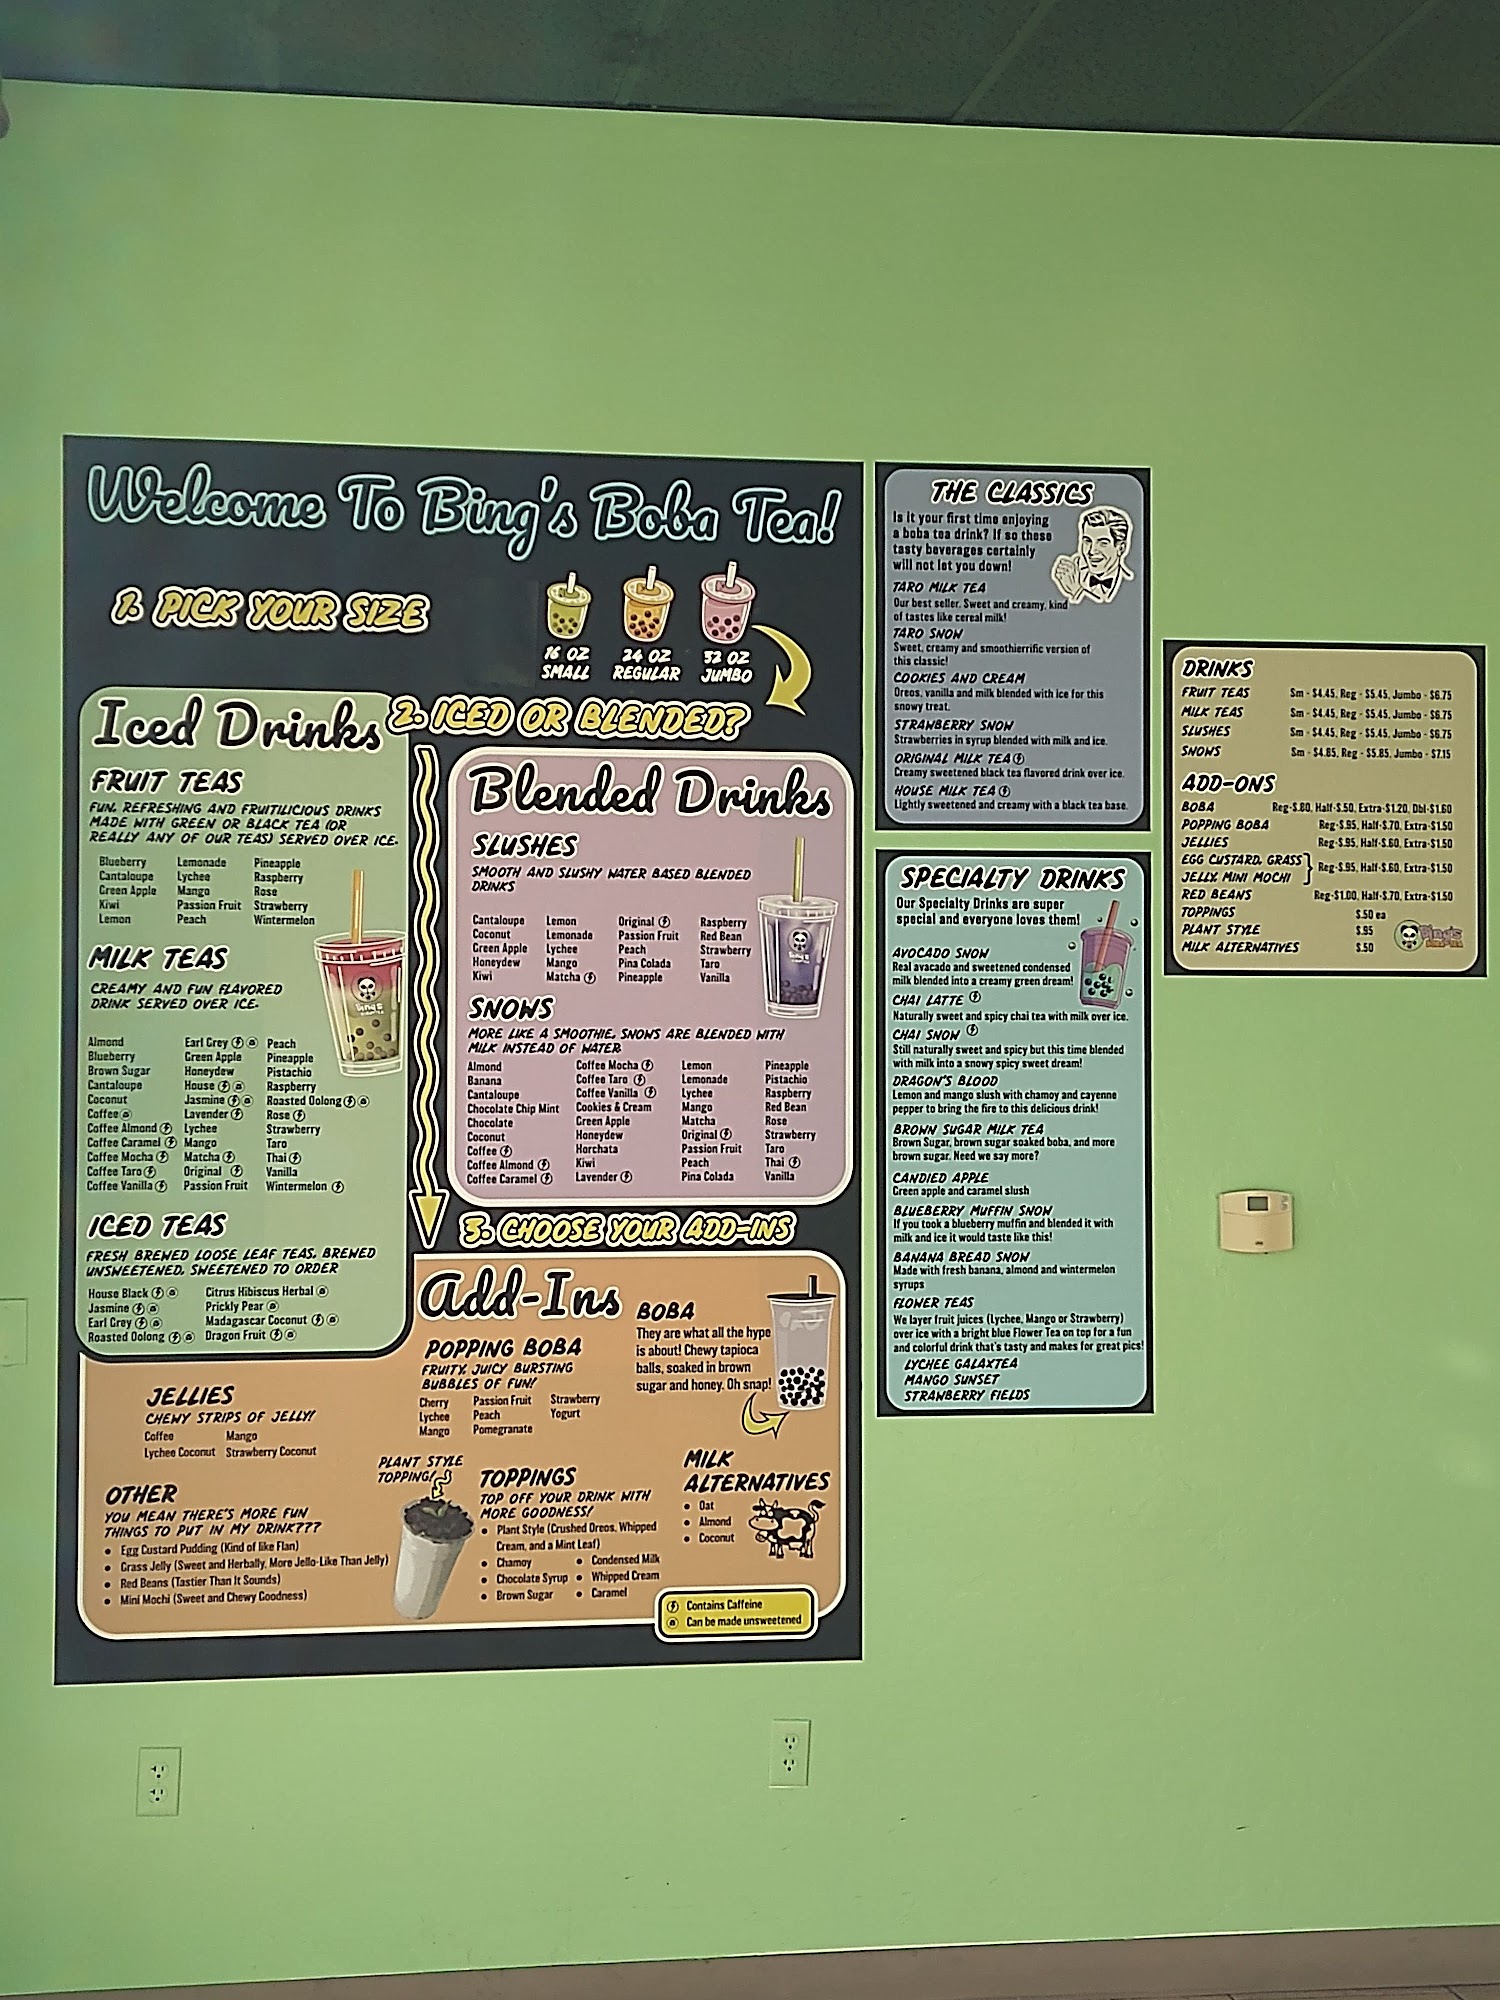 Welcome To Bing's Boba Tea!
1. PICK YOUR SIZE
16 OZ SMALL
24 OZ REGULAR
32 OZ JUMBO
2. ICED OR BLENDED?
Iced Drinks
FRUIT TEAS
FUN, REFRESHING AND FRUITILICIOUS DRINKS
MADE WITH GREEN OR BLACK TEA (OR
REALLY ANY OF OUR TEAS) SERVED OVER ICE.
Blueberry Lemonade Pineapple
Cantaloupe Lychee Raspberry
Green Apple Mango Rose
Kiwi Passion Fruit Strawberry
Lemon Peach Wintermelon
MILK TEAS
CREAMY AND FUN FLAVORED
DRINK SERVED OVER ICE.
Almond Earl Grey Peach
Blueberry Green Apple Pineapple
Brown Sugar Honeydew Pistachio
Cantaloupe House Raspberry
Coconut Jasmine Roasted Oolong
Coffee Lavender Rose
Coffee Almond Lychee Strawberry
Coffee Caramel Mango Taro
Coffee Mocha Matcha Thai
Coffee Taro Original Vanilla
Coffee Vanilla Passion Fruit Wintermelon
ICED TEAS
FRESH BREWED LOOSE LEAF TEAS, BREWED
UNSWEETENED, SWEETENED TO ORDER
House Black Citrus Hibiscus Herbal
Jasmine Prickly Pear
Earl Grey Madagascar Coconut
Roasted Oolong Dragon Fruit
Blended Drinks
SLUSHES
SMOOTH AND SLUSHY WATER BASED BLENDED
DRINKS
Cantaloupe Lemon Original Raspberry
Coconut Lemonade Passion Fruit Red Bean
Green Apple Lychee Peach Strawberry
Honeydew Mango Pina Colada Taro
Kiwi Matcha Pineapple Vanilla
SNOWS
MORE LIKE A SMOOTHIE, SNOWS ARE BLENDED WITH
MILK INSTEAD OF WATER
Almond Coffee Mocha Lemon Pineapple
Banana Coffee Taro Lemonade Pistachio
Cantaloupe Coffee Vanilla Lychee Raspberry
Chocolate Chip Mint Cookies & Cream Mango Red Bean
Chocolate Green Apple Matcha Rose
Coconut Honeydew Original Strawberry
Coffee Horchata Passion Fruit Taro
Coffee Almond Kiwi Peach Thai
Coffee Caramel Lavender Pina Colada Vanilla
3. CHOOSE YOUR ADD-INS
Add-Ins
POPPING BOBA
FRUITY, JUICY BURSTING
BUBBLES OF FUN!
Cherry Passion Fruit Strawberry
Lychee Peach Yogurt
Mango Pomegranate
BOBA
They are what all the hype
is about! Chewy tapioca
balls, soaked in brown
sugar and honey. Oh snap!
JELLIES
CHEWY STRIPS OF JELLY!
Coffee Mango
Lychee Coconut Strawberry Coconut
OTHER
YOU MEAN THERE'S MORE FUN
THINGS TO PUT IN MY DRINK???
• Egg Custard Pudding (Kind of like Flan)
• Grass Jelly (Sweet and Herbally, More Jello-Like Than Jelly)
• Red Beans (Tastier Than It Sounds)
• Mini Mochi (Sweet and Chewy Goodness)
PLANT STYLE
TOPPING!
TOPPINGS
TOP OFF YOUR DRINK WITH
MORE GOODNESS!
• Plant Style (Crushed Oreos, Whipped
Cream, and a Mint Leaf)
• Chamoy • Condensed Milk
• Chocolate Syrup • Whipped Cream
• Brown Sugar • Caramel
MILK
ALTERNATIVES
• Oat
• Almond
• Coconut
Contains Caffeine
Can be made unsweetened
THE CLASSICS
Is it your first time enjoying
a boba tea drink? If so these
tasty beverages certainly
will not let you down!
TARO MILK TEA
Our best seller. Sweet and creamy, kind
of tastes like cereal milk!
TARO SNOW
Sweet, creamy and smoothierrific version of
this classic!
COOKIES AND CREAM
Oreos, vanilla and milk blended with ice for this
snowy treat.
STRAWBERRY SNOW
Strawberries in syrup blended with milk and ice.
ORIGINAL MILK TEA
Creamy sweetened black tea flavored drink over ice.
HOUSE MILK TEA
Lightly sweetened and creamy with a black tea base.
SPECIALTY DRINKS
Our Specialty Drinks are super
special and everyone loves them!
AVOCADO SNOW
Real avacado and sweetened condensed
milk blended into a creamy green dream!
CHAI LATTE
Naturally sweet and spicy chai tea with milk over ice.
CHAI SNOW
Still naturally sweet and spicy but this time blended
with milk into a snowy spicy sweet dream!
DRAGON'S BLOOD
Lemon and mango slush with chamoy and cayenne
pepper to bring the fire to this delicious drink!
BROWN SUGAR MILK TEA
Brown Sugar, brown sugar soaked boba, and more
brown sugar. Need we say more?
CANDIED APPLE
Green apple and caramel slush
BLUEBERRY MUFFIN SNOW
If you took a blueberry muffin and blended it with
milk and ice it would taste like this!
BANANA BREAD SNOW
Made with fresh banana, almond and wintermelon
syrups
FLOWER TEAS
We layer fruit juices (Lychee, Mango or Strawberry)
over ice with a bright blue Flower Tea on top for a fun
and colorful drink that's tasty and makes for great pics!
LYCHEE GALAXTEA
MANGO SUNSET
STRAWBERRY FIELDS
DRINKS
FRUIT TEAS Sm - $4.45, Reg - $5.45, Jumbo - $6.75
MILK TEAS Sm - $4.45, Reg - $5.45, Jumbo - $6.75
SLUSHES Sm - $4.45, Reg - $5.45, Jumbo - $6.75
SNOWS Sm - $4.85, Reg - $5.85, Jumbo - $7.15
ADD-ONS
BOBA Reg-$.80, Half-$.50, Extra-$1.20, Dbl-$1.60
POPPING BOBA Reg-$.95, Half-$.70, Extra-$1.50
JELLIES Reg-$.95, Half-$.60, Extra-$1.50
EGG CUSTARD, GRASS
JELLY, MINI MOCHI } Reg-$.95, Half-$.60, Extra-$1.50
RED BEANS Reg-$1.00, Half-$.70, Extra-$1.50
TOPPINGS $.50 ea
PLANT STYLE $.95
MILK ALTERNATIVES $.50